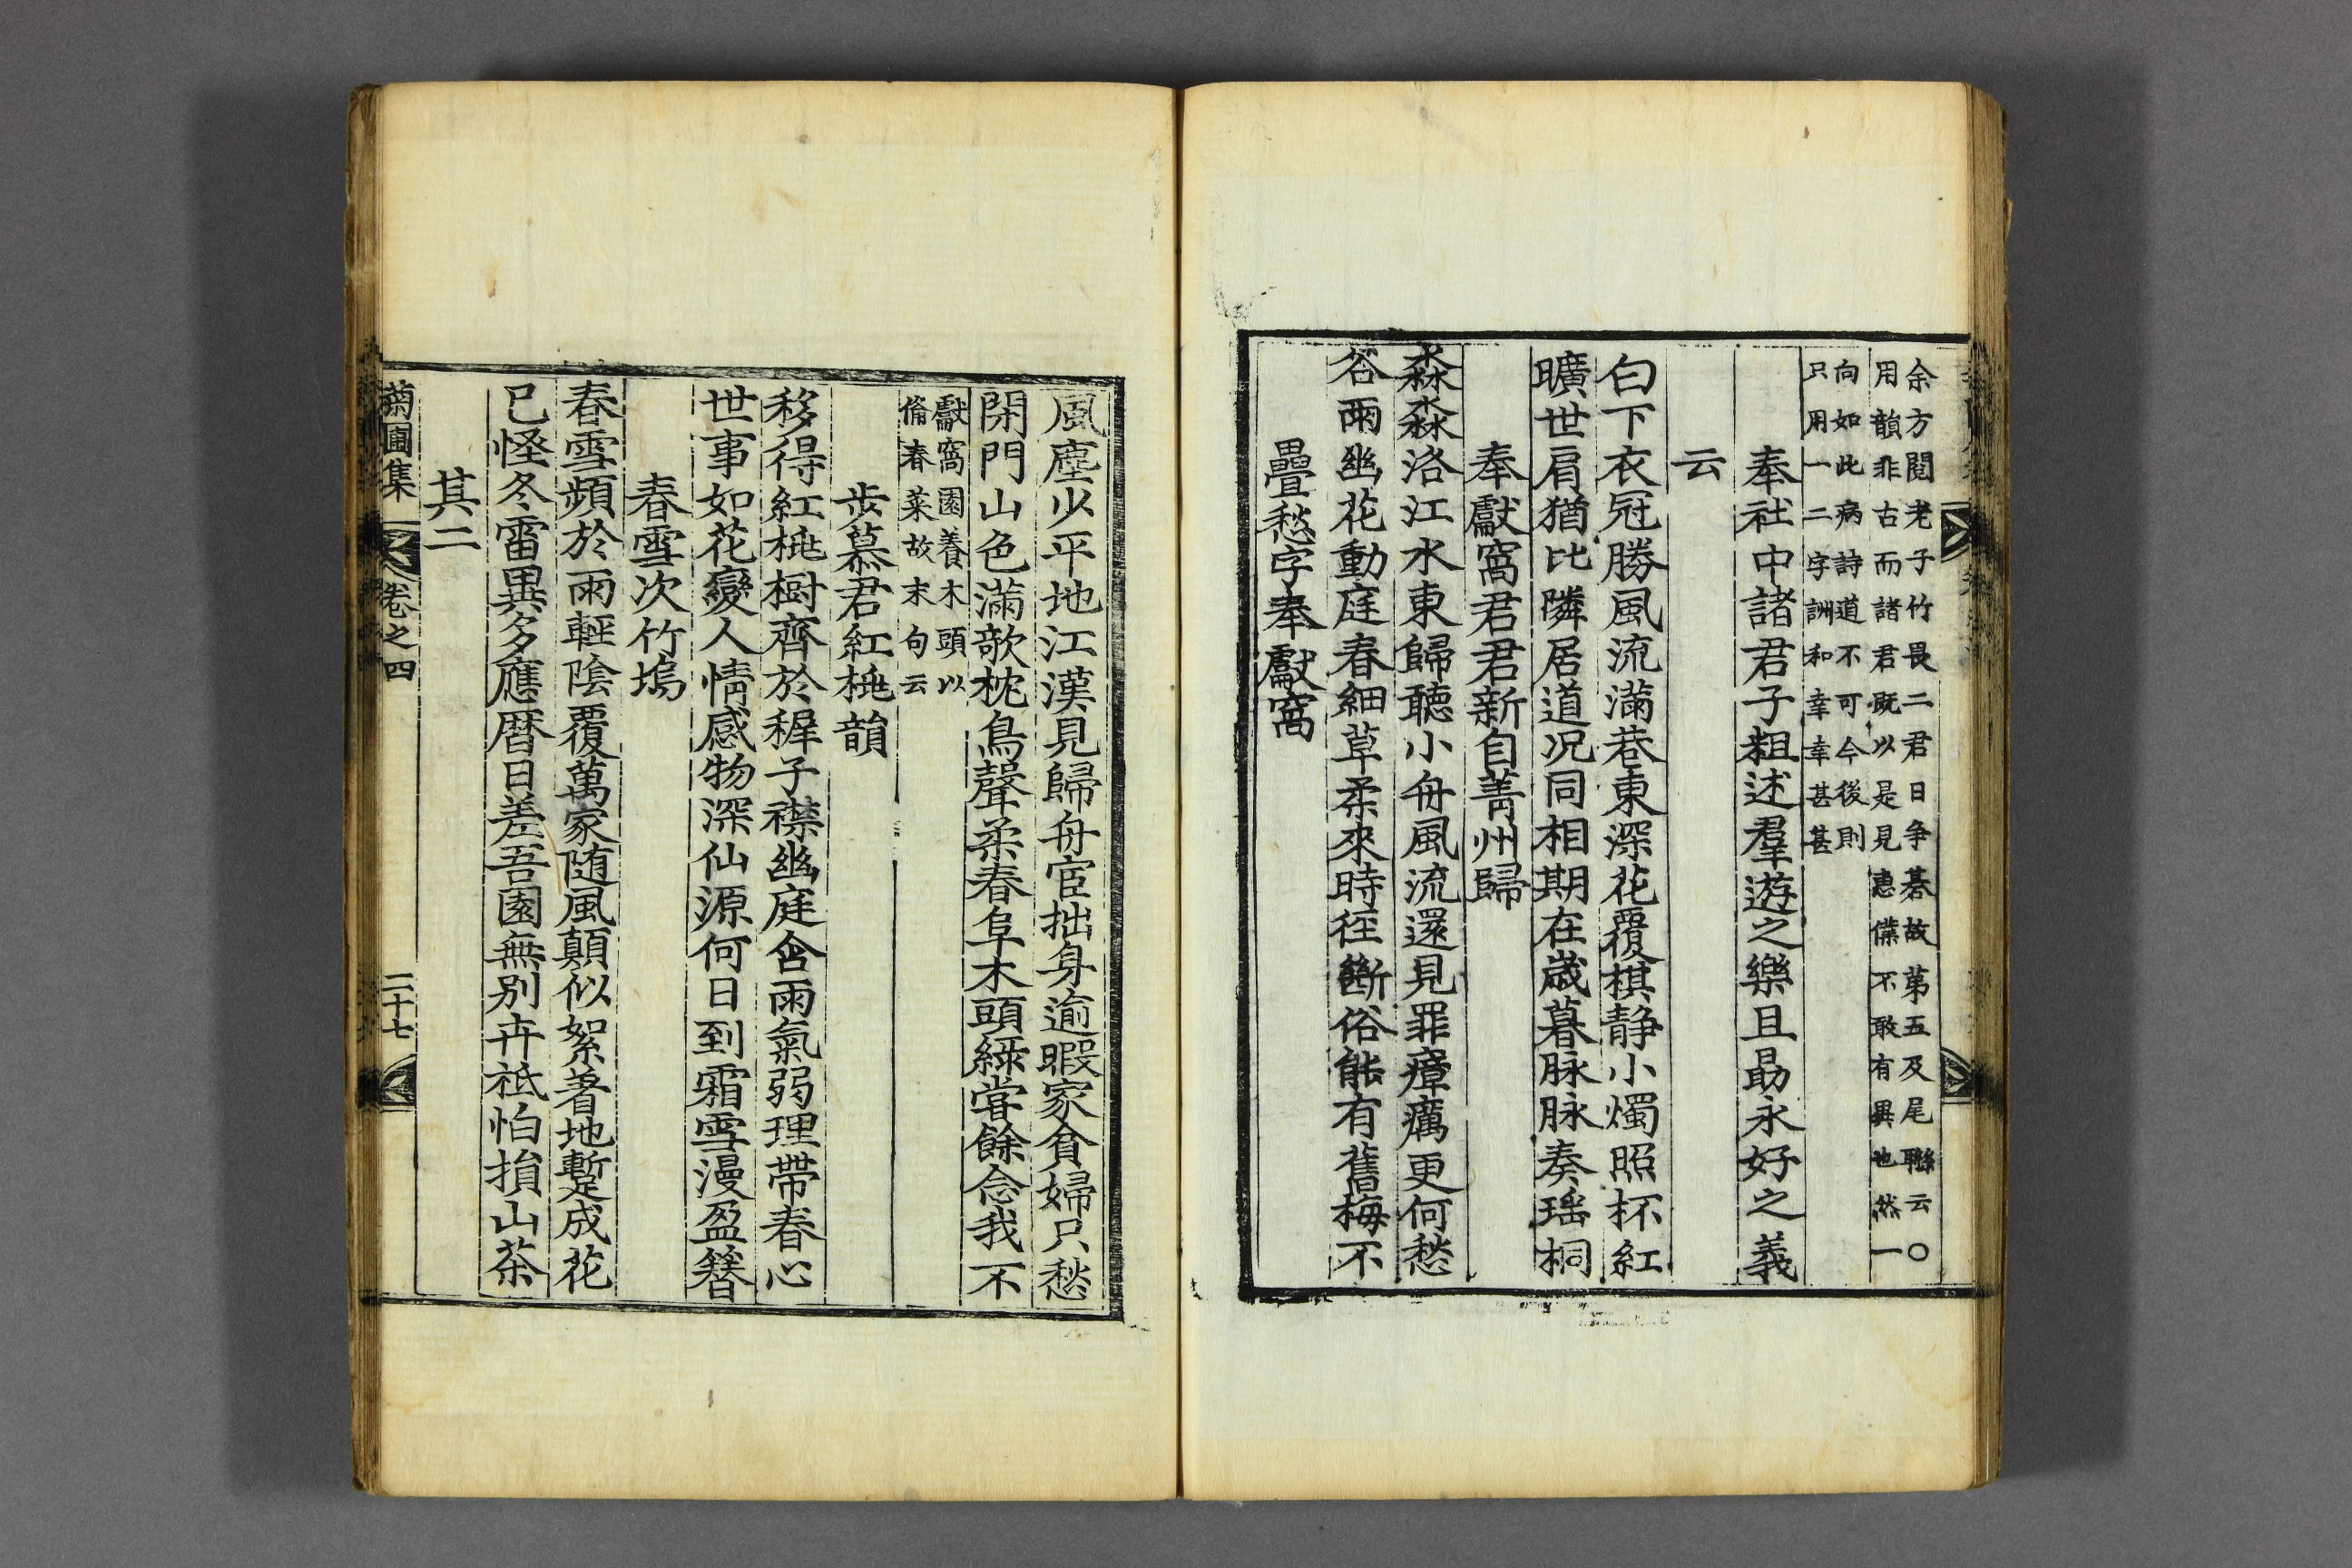 余方閱老子竹畏二君日爭棊故第五及尾聯云○
用韻非古而諸君旣以是見惠僕不敢有異也然一
向如此病詩道不可今後則
只用一二字詶和幸幸甚甚
奉社中諸君子粗述羣遊之樂且勗永好之義
云
白下衣冠勝風流滿巷東深花覆棋静小燭照杯紅
曠世肩猶比隣居道况同相期在歲暮脉脉奏瑶桐
奉獻窩君君新自菁州歸
淼淼洛江水東歸聽小舟風流還見罪瘴癘更何愁
谷雨幽花動庭春細草柔來時徑斷俗能有舊梅不
疊愁字奉獻窩
風塵少平地江漢見歸舟宦拙身逾暇家貧婦只愁
閑門山色滿欹枕鳥聲柔春阜木頭綠甞餘念我不
獻窩園養木頭以
備春菜故末句云
步慕君紅桃韻
移得紅桃樹齊於穉子襟幽庭含雨氣弱理帶春心
世事如花變人情感物深仙源何日到霜雪漫盈簪
春雪次竹塢
春雪頻於雨輕陰覆萬家随風顛似絮着地蹔成花
已怪冬雷異多應曆日差吾園無别卉祗怕損山茶
其二
菊圃集 卷之四 二十七